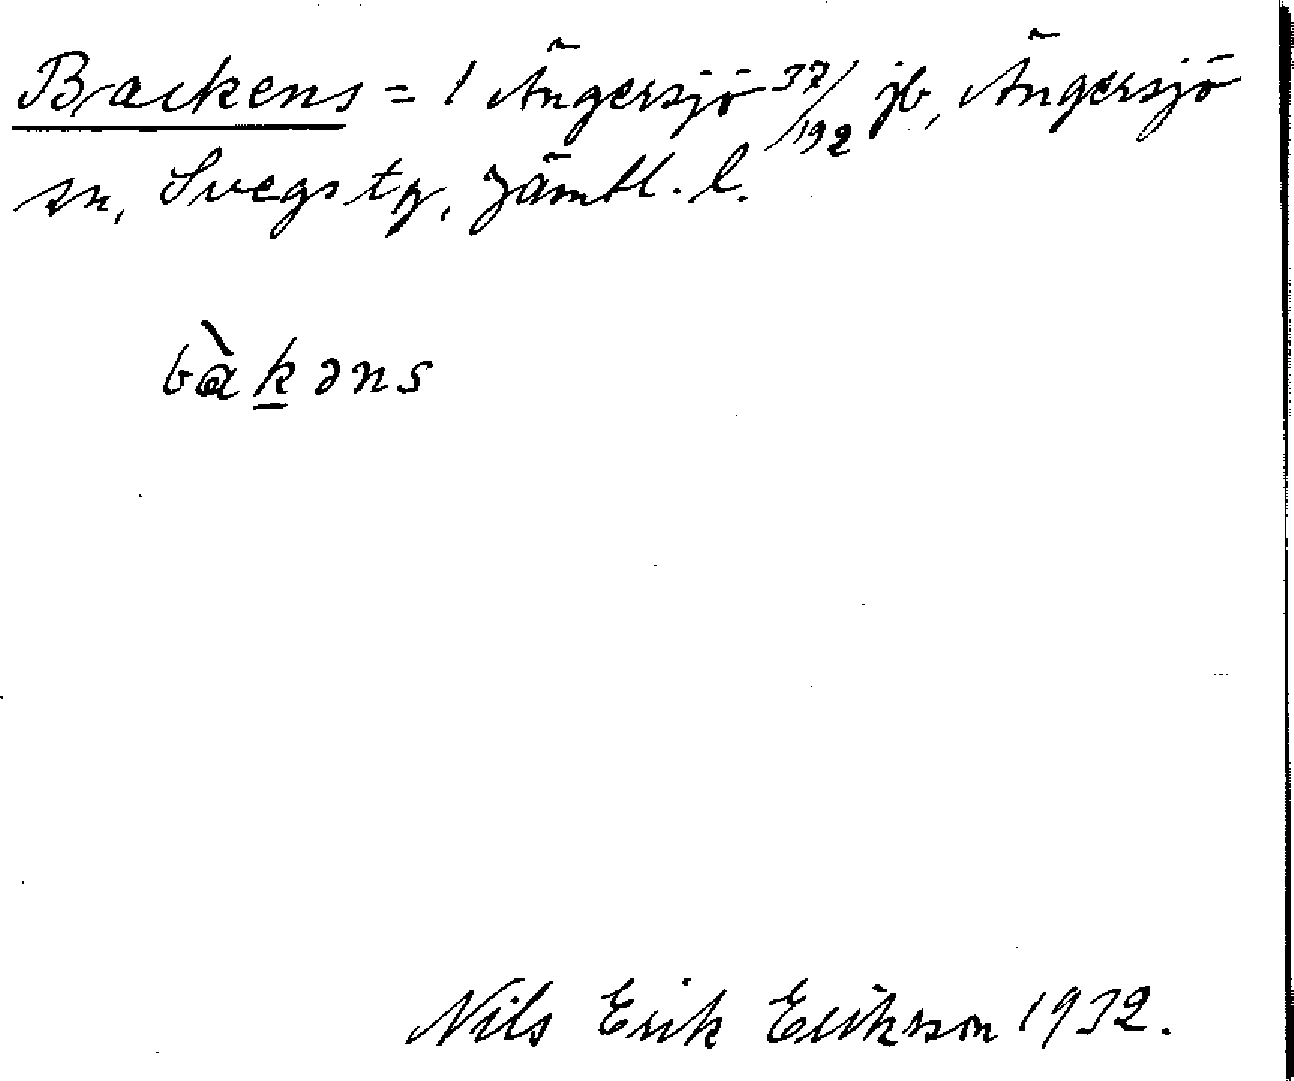 Backens = 1 Ängersjö 37/192 jb, Ängersjö
sn, Svegs tg, Jämtl. l.
bàkəns
Nils Erik Eriksson 1932.